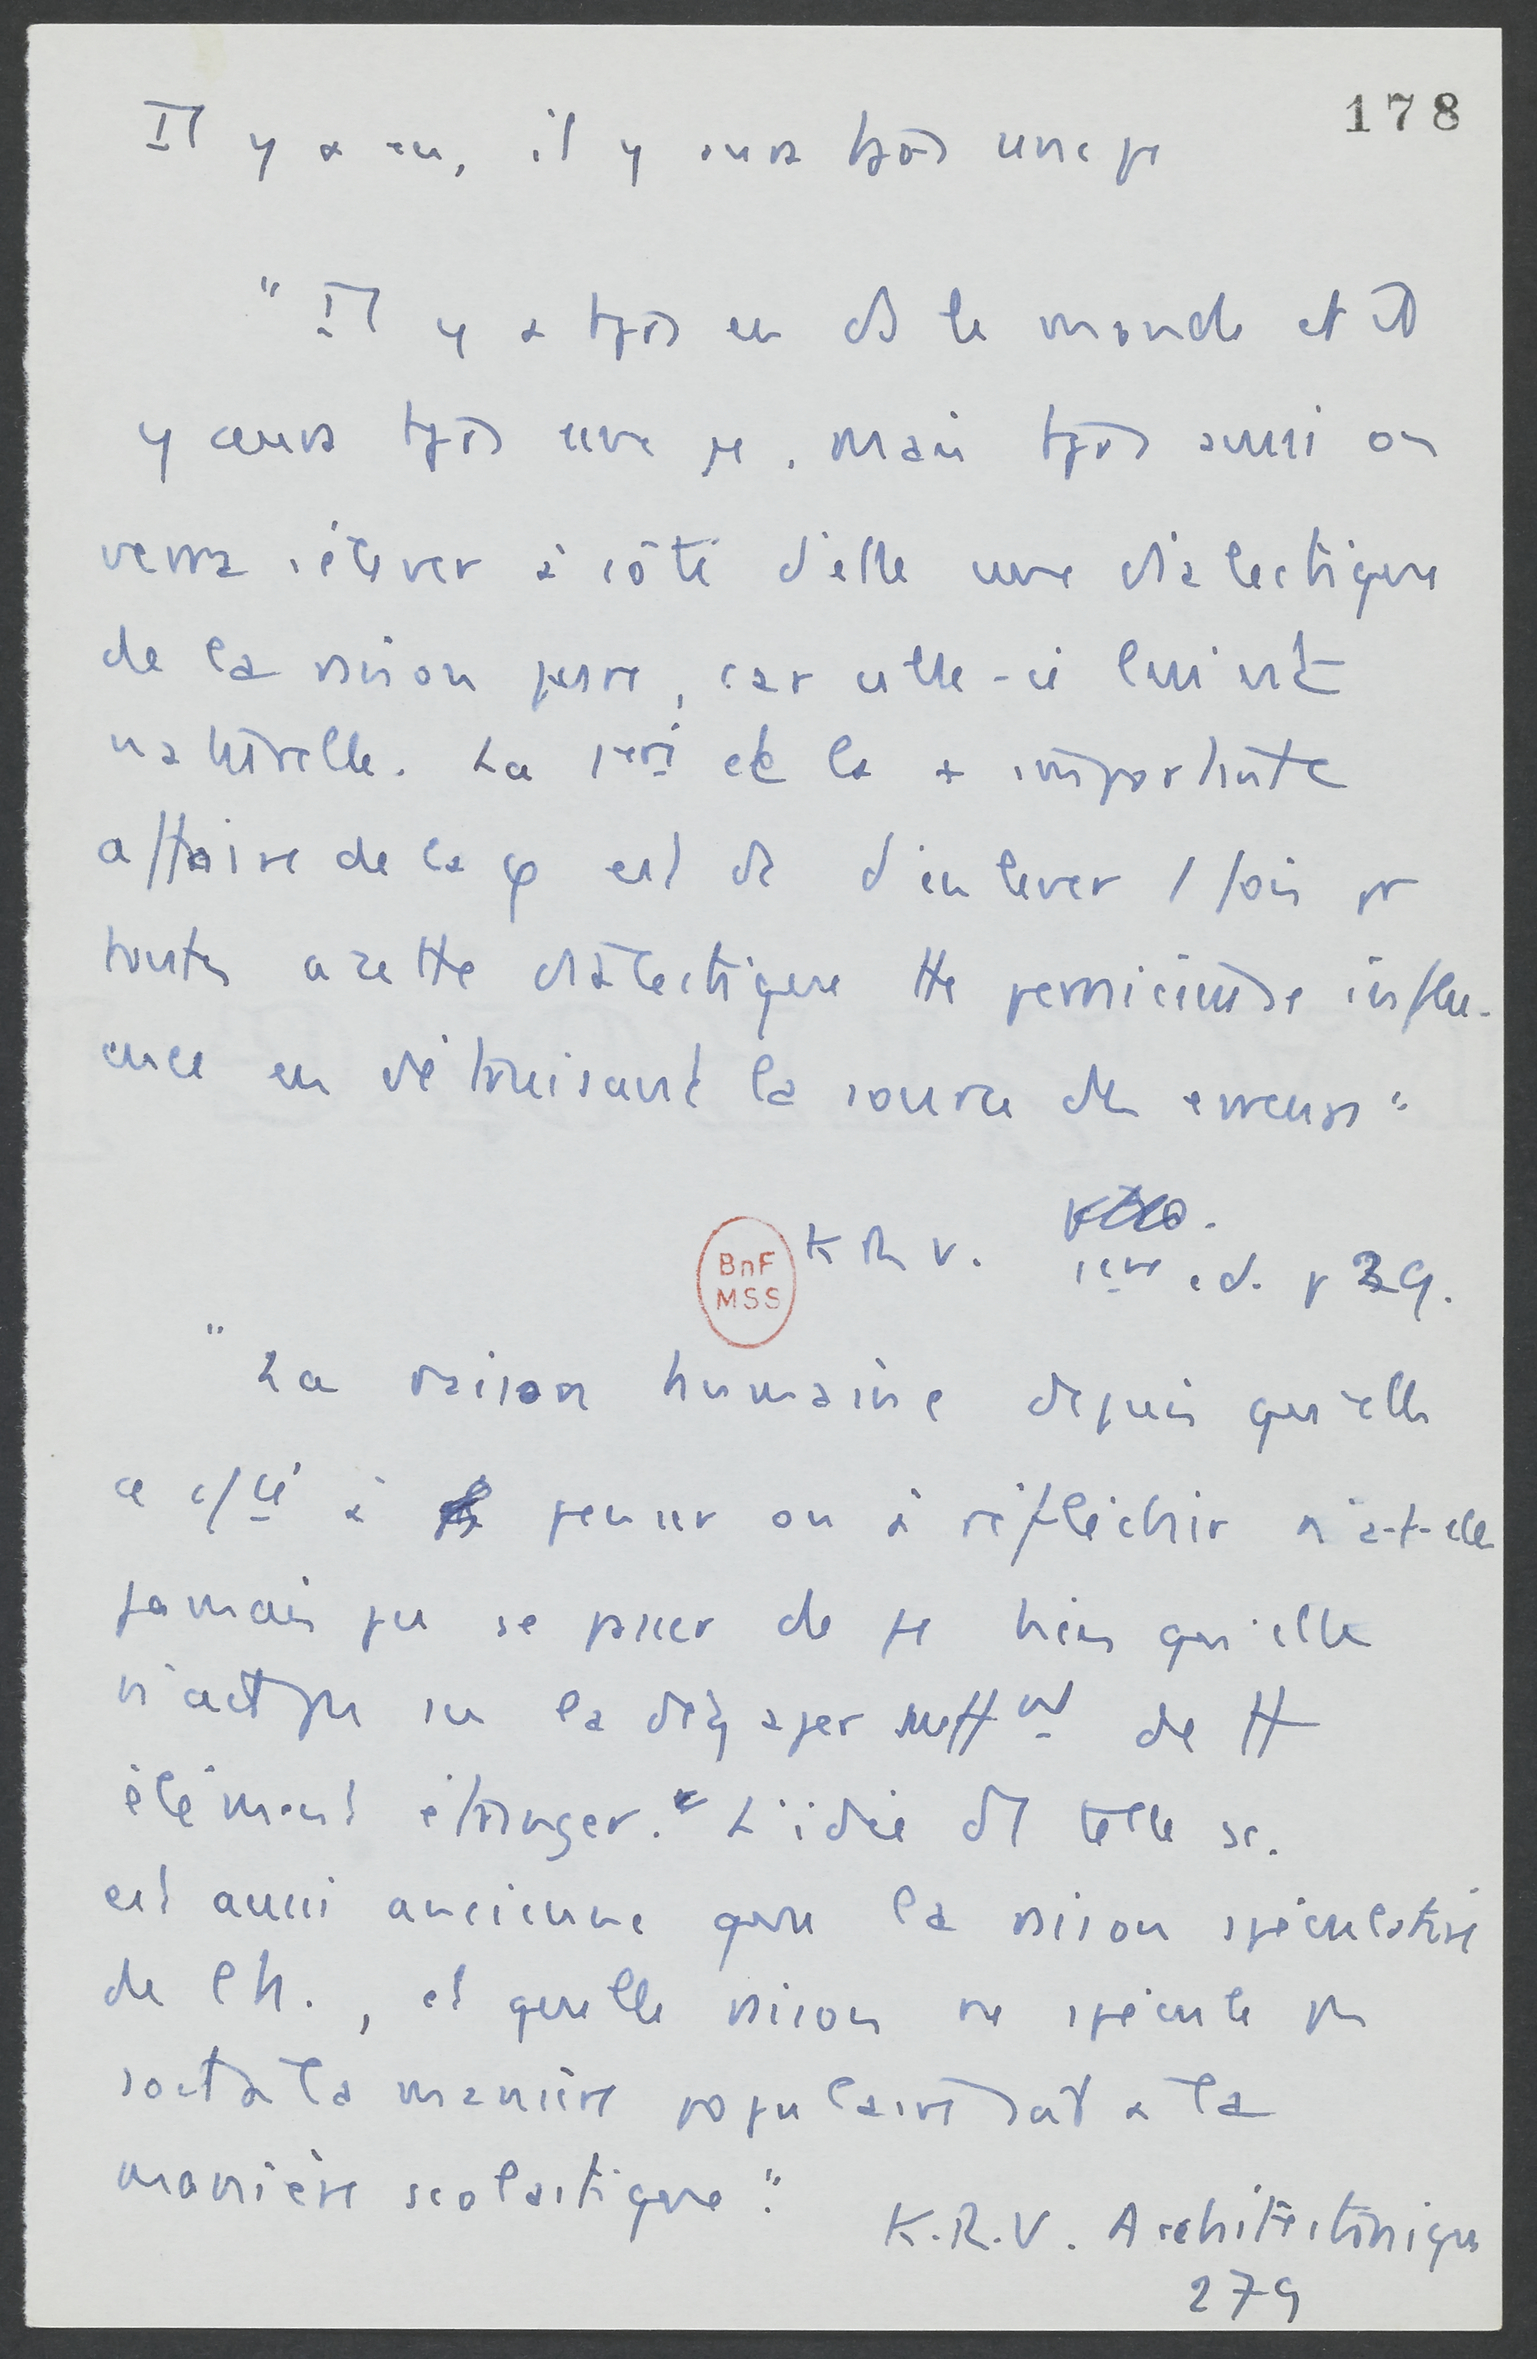 178
Il y a eu, il y aura tjrs une φ
"Il y a tjrs eu ds le monde et il
y aura tjrs une φ. Mais tjrs aussi on
verra s'élever à côté d'elle une dialectique
de la raison pure, car celle-ci lui est
naturelle. La 1ere et la + importante
affaire de la φ est d'enlever 1 fois pr
toutes à cette dialectique tte pernicieuse influ-
ence en détruisant la source des erreurs"
K R V. 1ere ed. p 29.
BnF
MSS
"La raison humaine depuis qu'elle
a cé à penser ou à réfléchir n'a-t-elle
jamais pu se passer de bien qu'elle
n'ait pas su la dégager suffnt de tt
élément étranger." L'idée d'1 telle sc.
est aussi ancienne que la raison spéculative
de l'h., et quelle raison ne spécule pas
soit à la manière populaire soit à la
manière scolastique".
K.R.V. Architectonique
279